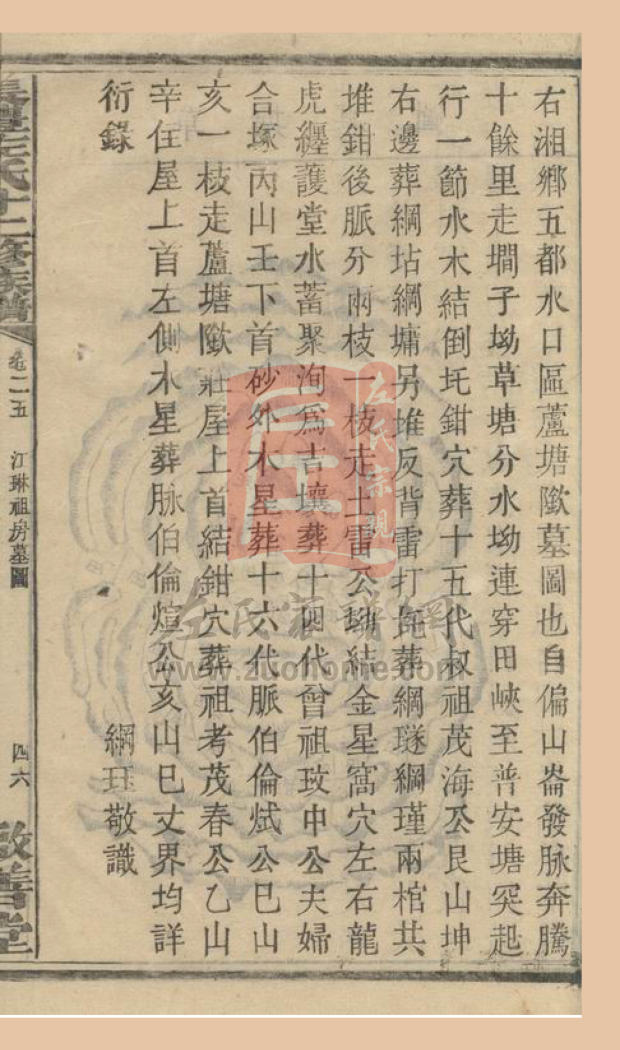 右湘鄉五都水口區蘆塘墓圖也自偏山崙發脉奔騰
十餘里走墹子坳草塘分水坳連穿田峽至普安塘突起
行一節水木結倒地鉗穴葬十五代叔祖茂海公艮山坤
右邊葬綱坫綱墉另堆反背雷打葬綱璲綱瑾兩棺共
堆鉗後脈分兩枝一枝走土雷公坳結金星窩穴左右龍
虎纏護堂水蓄聚洵爲吉壤葬十四代曾祖玟中公夫婦
合塚丙山壬下首砂外木星葬十六代脈伯倫烒公巳山
亥一枝走蘆塘莊屋上首結鉗穴葬祖考茂春公乙山
辛住屋上首左側水星葬脉伯倫煊公亥山巳丈界均詳
衍錄
綱玨敬識
左氏十二修族譜
卷二五
江琳祖房墓圖
四六
敬善堂
左氏宗親
左氏家譜網
www.zuohome.com